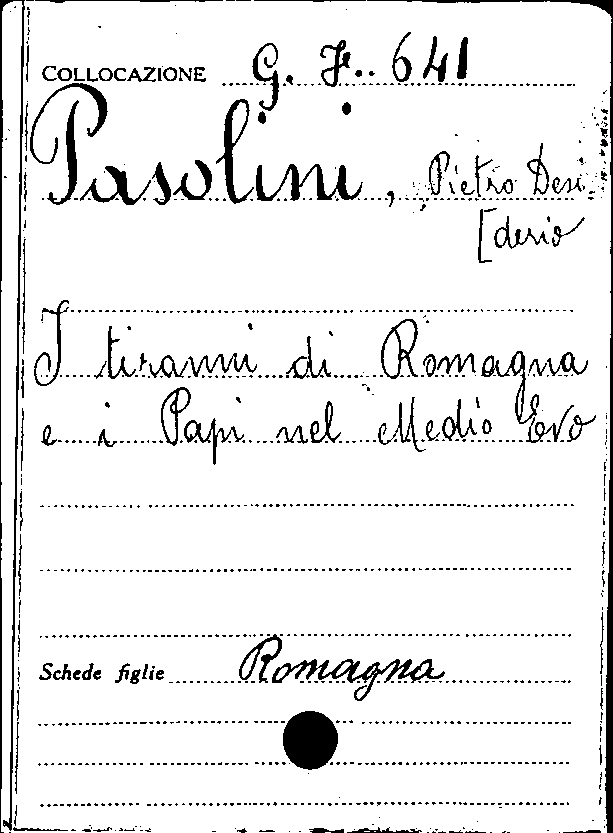 COLLOCAZIONE G. F. 641
Pasolini, Pietro Desi
[derio
I tiranni di Romagna
e i Papi nel Medio Evo
Schede figlie Romagna